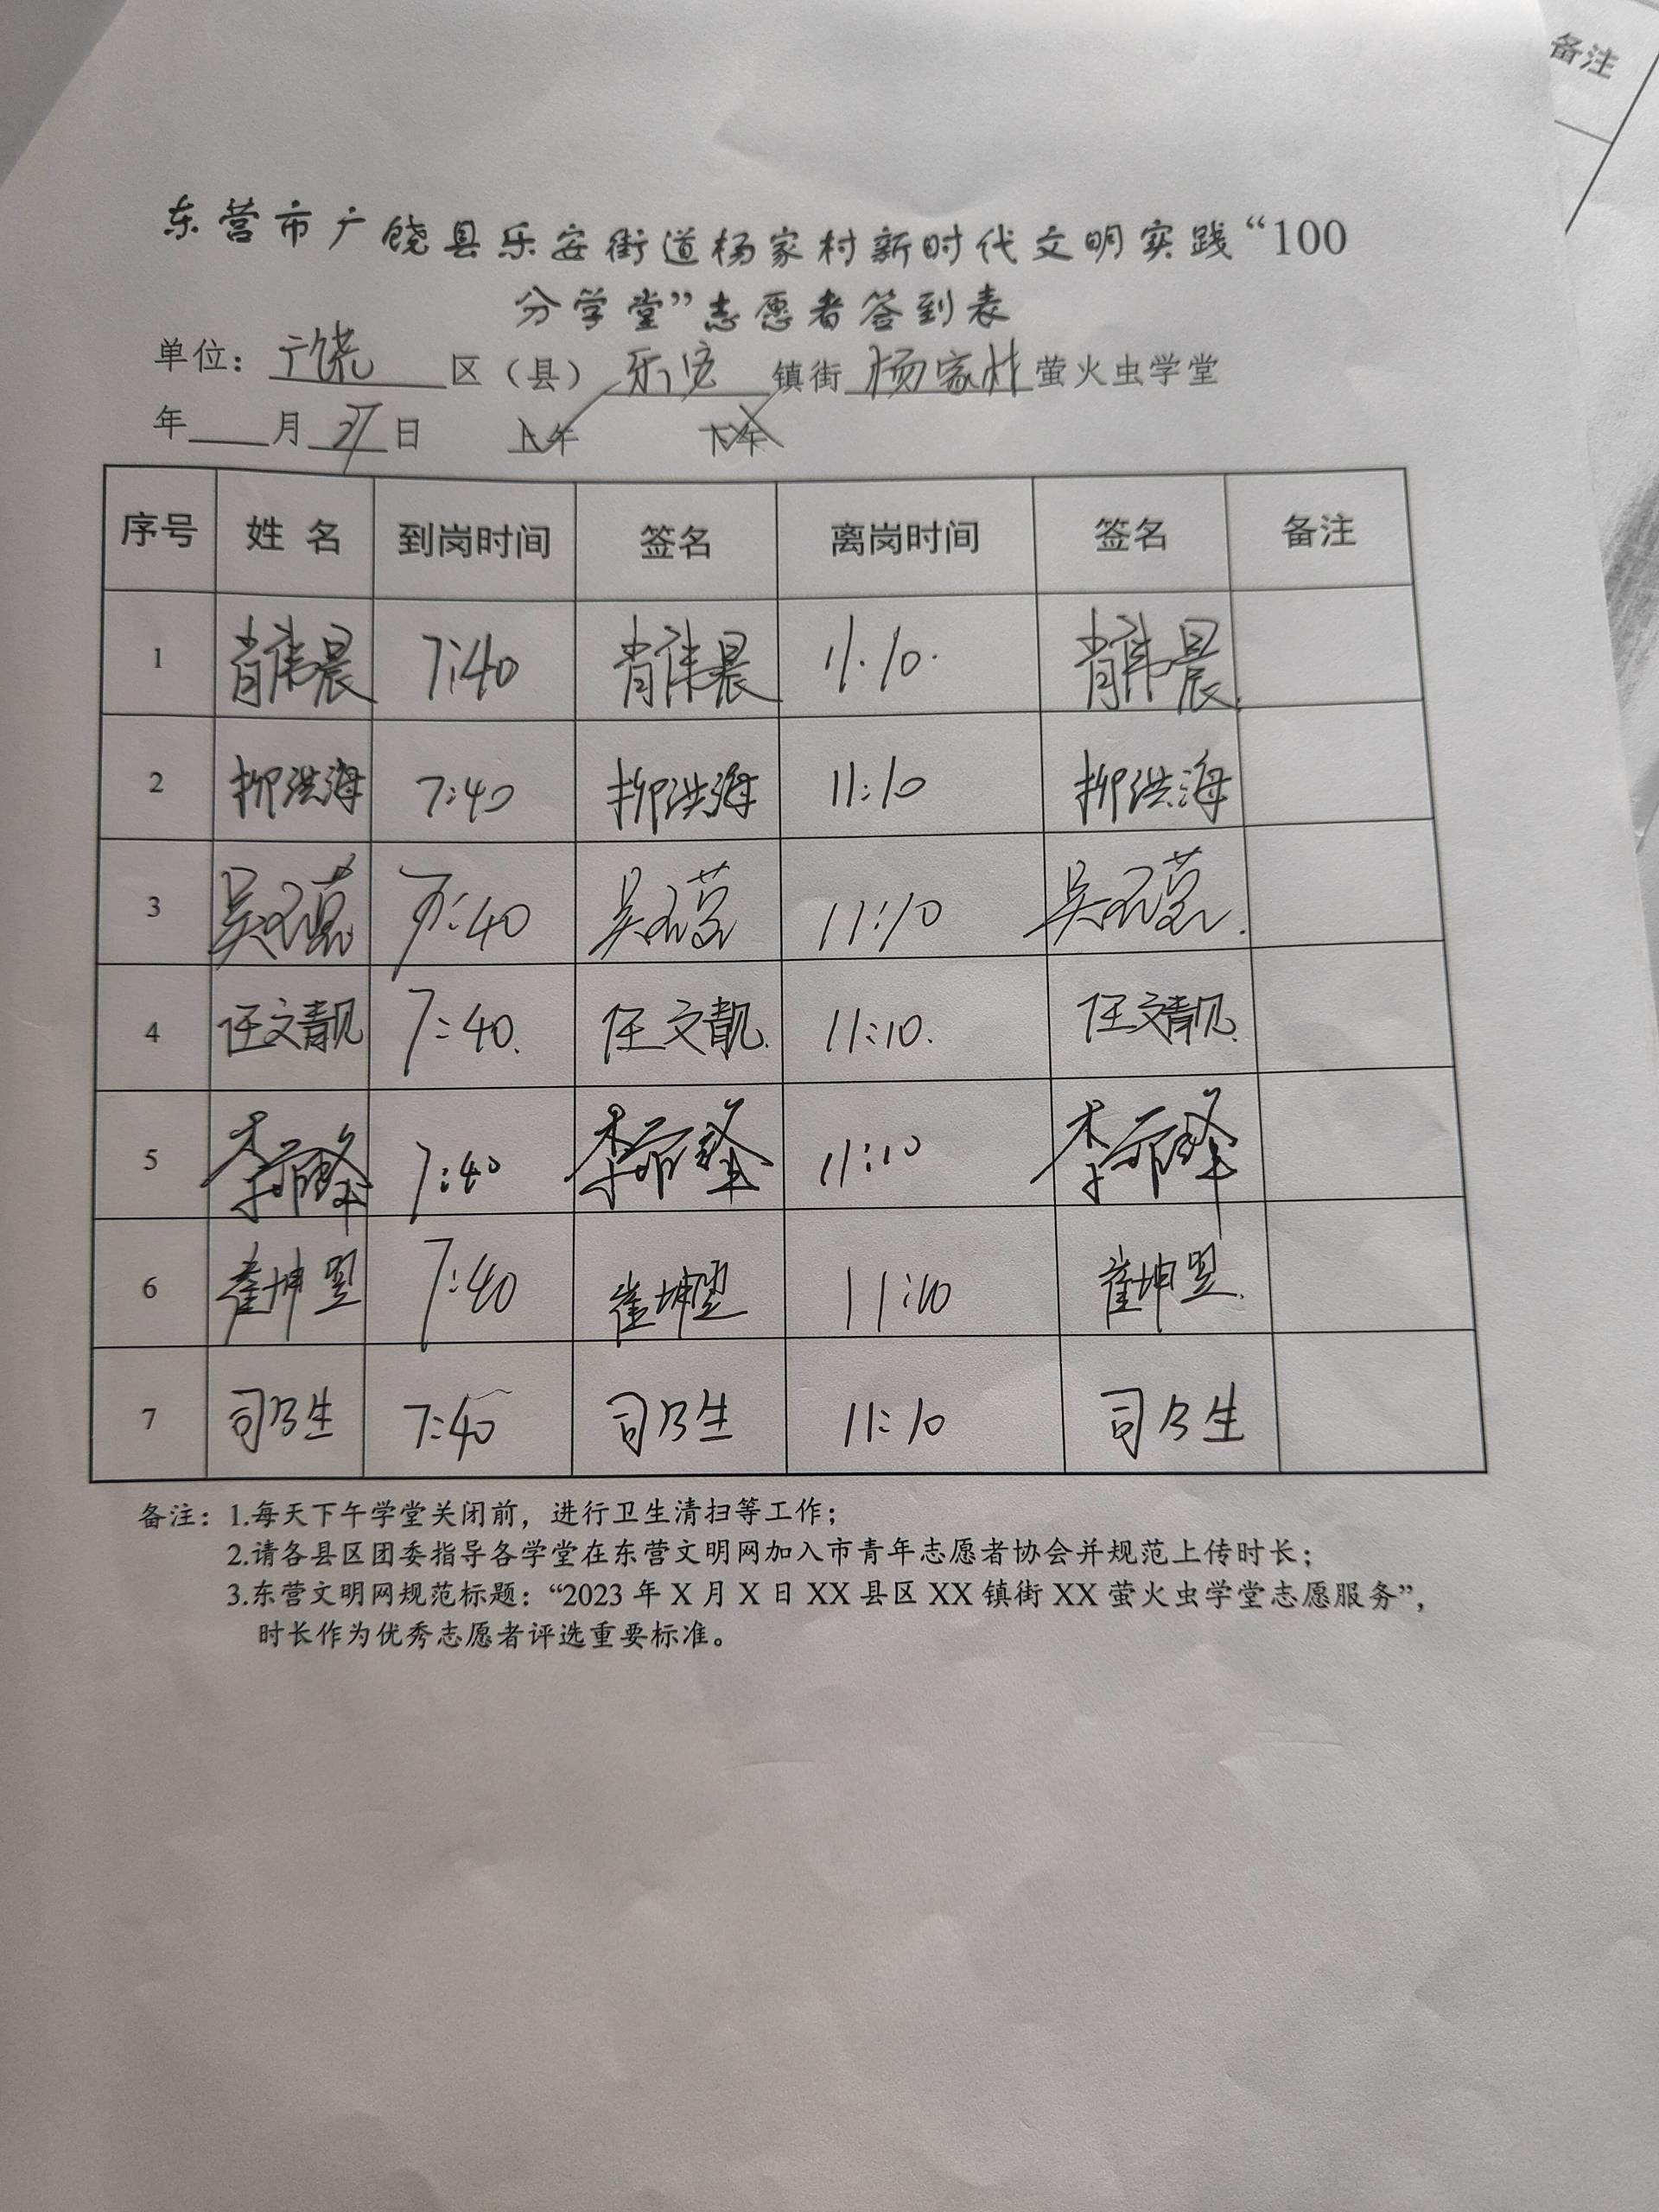 备注
东营市广饶县乐安街道杨家村新时代文明实践“100
分学堂”志愿者签到表
单位：广饶区（县）乐安镇街杨家村萤火虫学堂
年 月 日 上午 下午
序号 姓 名 到岗时间 签名 离岗时间 签名 备注
1 肖伟晨 7:40 肖伟晨 11:10 肖伟晨
2 柳洪海 7:40 柳洪海 11:10 柳洪海
3 吴 7:40 吴 11:10 吴
4 任文靓 7:40 任文靓 11:10 任文靓
5 李 7:40 李 11:10 李
6 崔坤昱 7:40 崔坤昱 11:10 崔坤昱
7 司乃生 7:40 司乃生 11:10 司乃生
备注：1.每天下午学堂关闭前，进行卫生清扫等工作；
2.请各县区团委指导各学堂在东营文明网加入市青年志愿者协会并规范上传时长；
3.东营文明网规范标题：“2023 年 X 月 X 日 XX 县区 XX 镇街 XX 萤火虫学堂志愿服务”，
时长作为优秀志愿者评选重要标准。